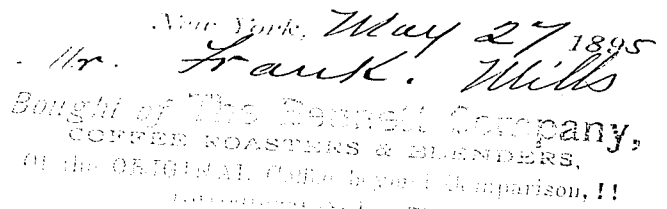 New York, May 27 1895
Mr. Frank. Mills
Bought of The Bennett Company,
COFFEE ROASTERS & BLENDERS,
Of the ORIGINAL Coffee beyond Comparison, !!